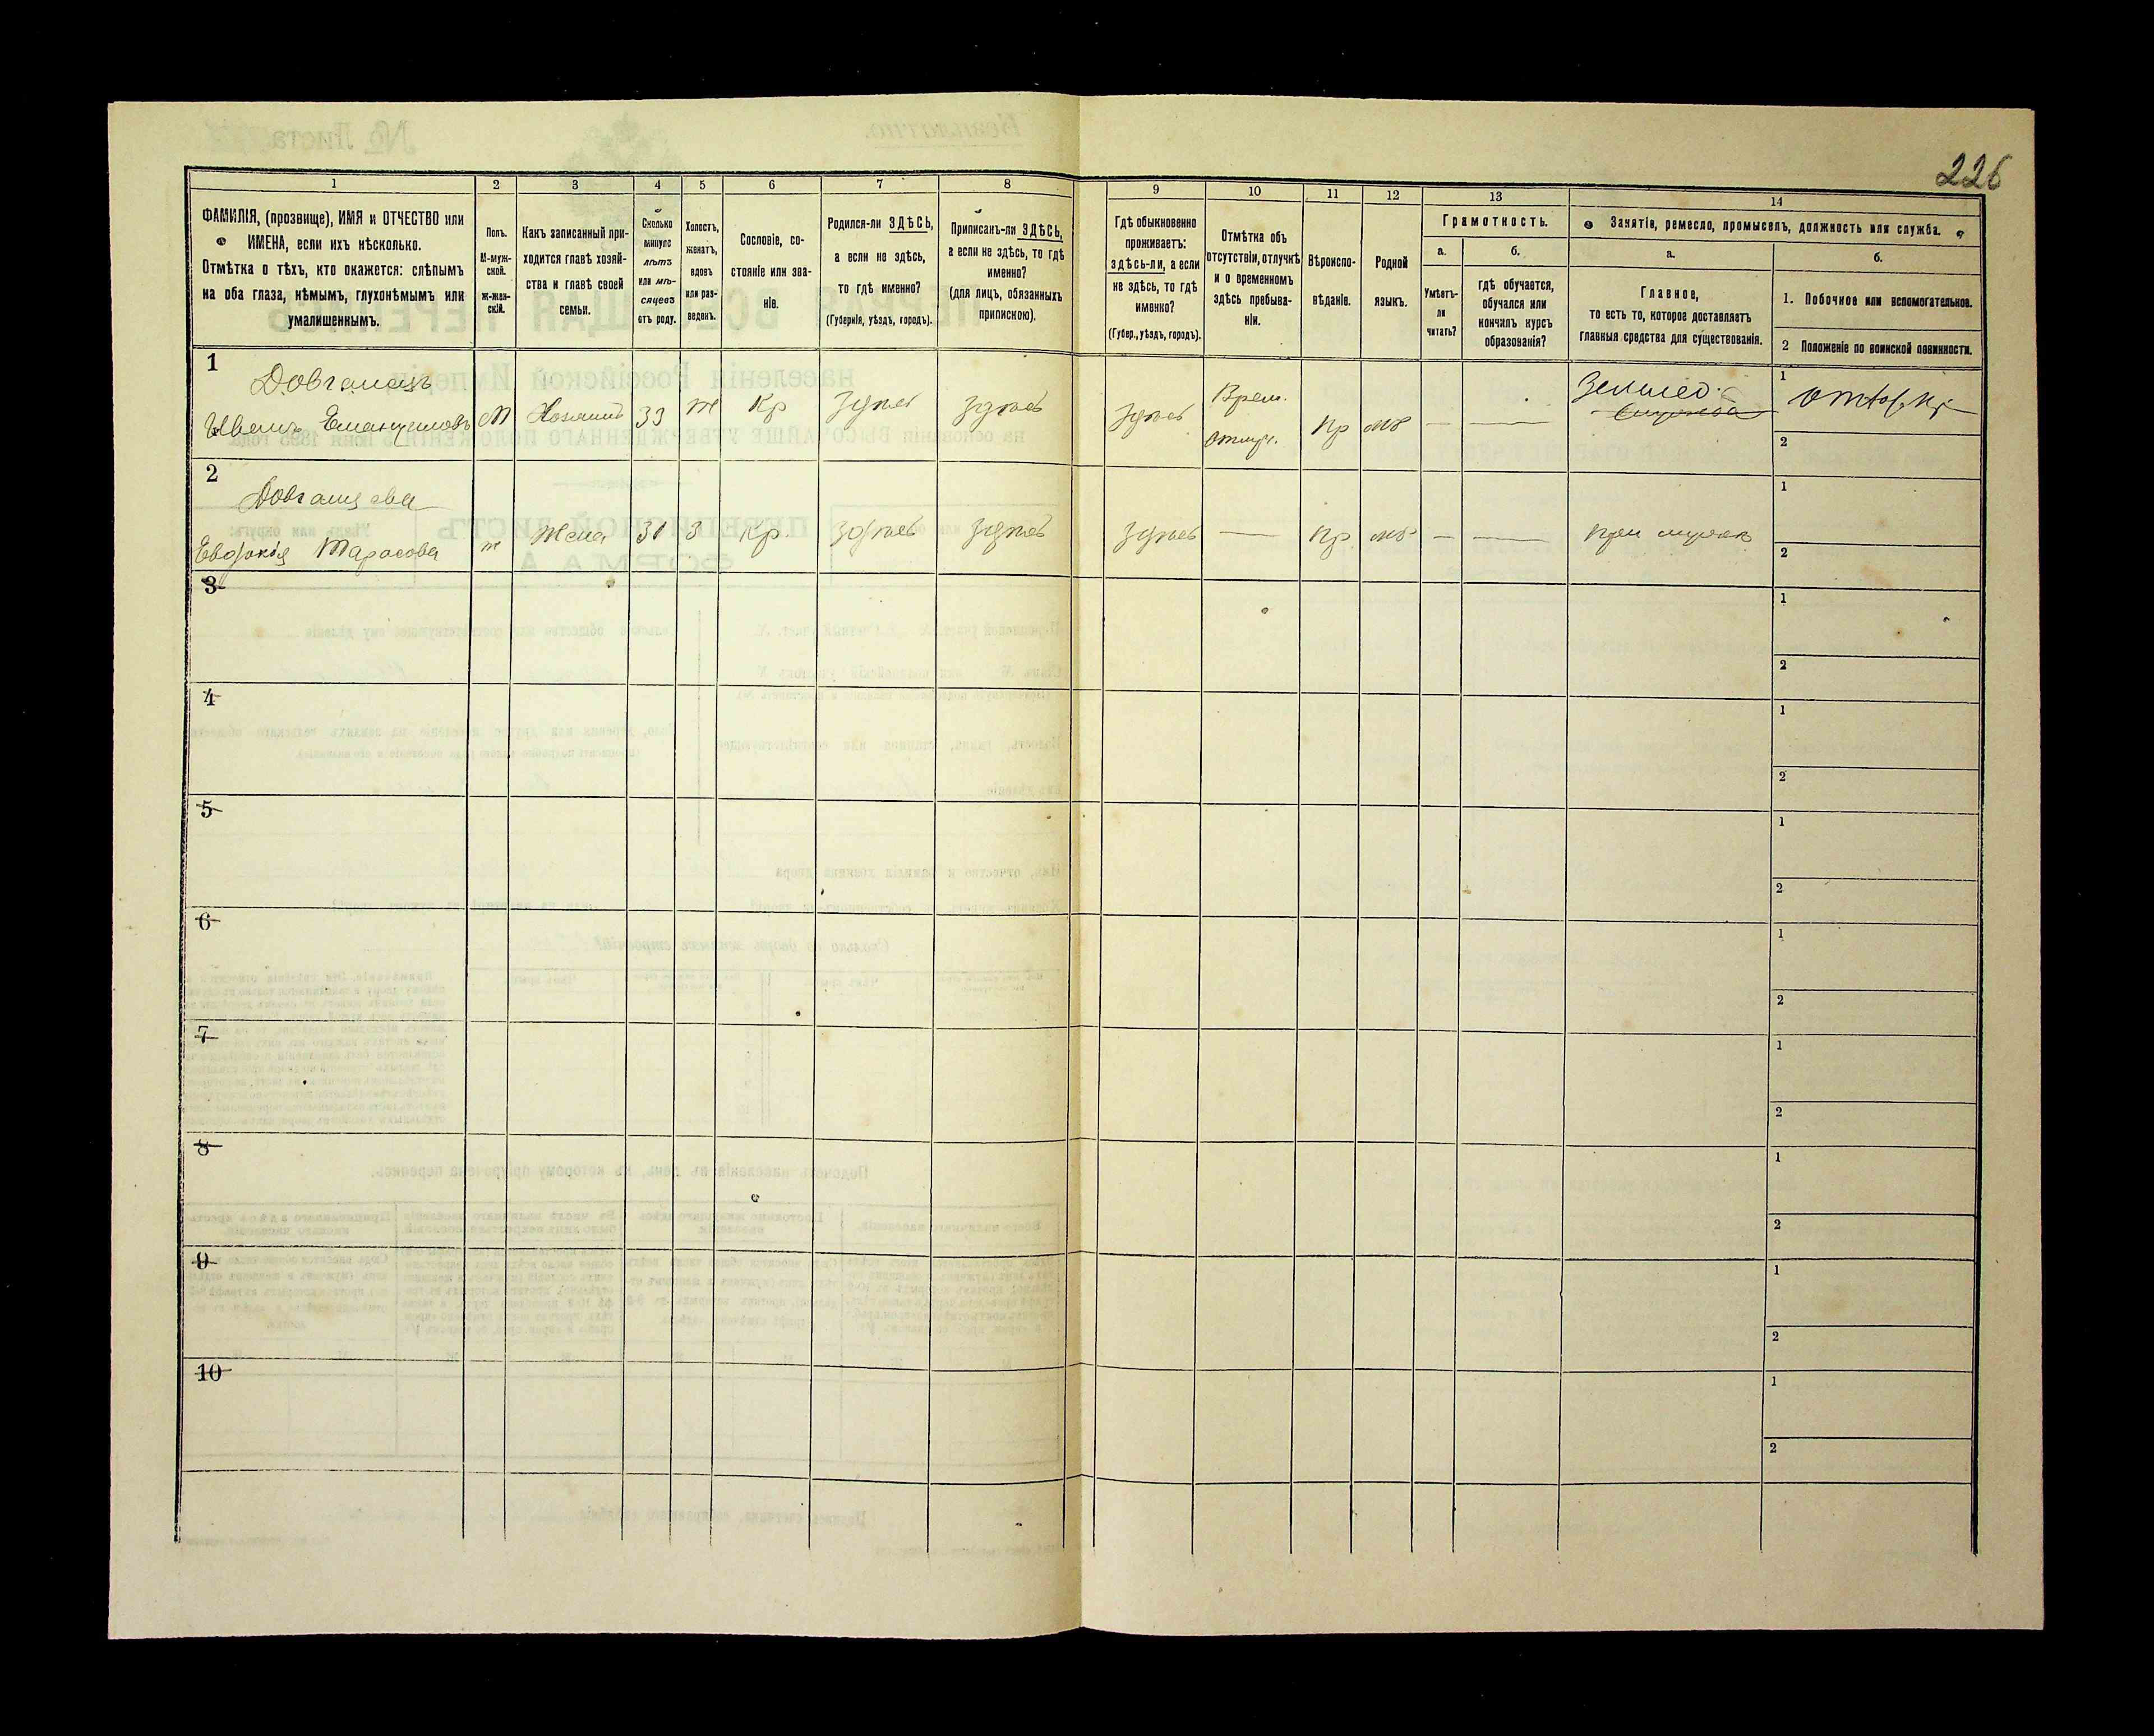 226
1 2 3 4 5 6 7 8 9 10 11 12 13 14
ФАМИЛІЯ, (прозвище), ИМЯ и ОТЧЕСТВО или
ИМЕНА, если ихъ нѣсколько.
Отмѣтка о тѣхъ, кто окажется: слѣпымъ
на оба глаза, нѣмымъ, глухонѣмымъ или
умалишеннымъ.
Полъ.
М-муж-
ской.
Ж-жен-
скій.
Какъ записанный при-
ходится главѣ хозяй-
ства и главѣ своей
семьи.
Сколько
минуло
лѣтъ
или мѣ-
сяцевъ
отъ роду.
Холостъ,
женатъ,
вдовъ
или раз-
веденъ.
Сословіе, со-
стояніе или зва-
ніе.
Родился-ли ЗДѢСЬ,
а если не здѣсь,
то гдѣ именно?
(Губернія, уѣздъ, городъ).
Приписанъ-ли ЗДѢСЬ,
а если не здѣсь, то гдѣ
именно?
(для лицъ, обязанныхъ
припискою).
Гдѣ обыкновенно
проживаетъ:
здѣсь-ли, а если
не здѣсь, то гдѣ
именно?
(Губер., уѣздъ, городъ).
Отмѣтка объ
отсутствіи, отлучкѣ
и о временномъ
здѣсь пребыва-
ніи.
Вѣроиспо-
вѣданіе.
Родной
языкъ.
Грамотность.
а.
Умѣетъ-
ли
читать?
б.
гдѣ обучается,
обучался или
кончилъ курсъ
образованія?
Занятіе, ремесло, промыселъ, должность или служба.
а.
Главное,
то есть то, которое доставляетъ
главныя средства для существованія.
б.
1. Побочное или вспомогательное.
2 Положеніе по воинской повинности.
1
Довганецъ
Иванъ Емануиловъ М Хозяинъ 33 ж Кр здѣсь здѣсь здѣсь Врем. отлуч. Пр мр — — Землед. 1
2
2
Довганцева
Евдокія Тарасова ж Жена 31 З Кр. здѣсь здѣсь здѣсь — Пр. мр — — при мужѣ 1
2
3 1
2
4 1
2
5 1
2
6 1
2
7 1
2
8 1
2
9 1
2
10 1
2